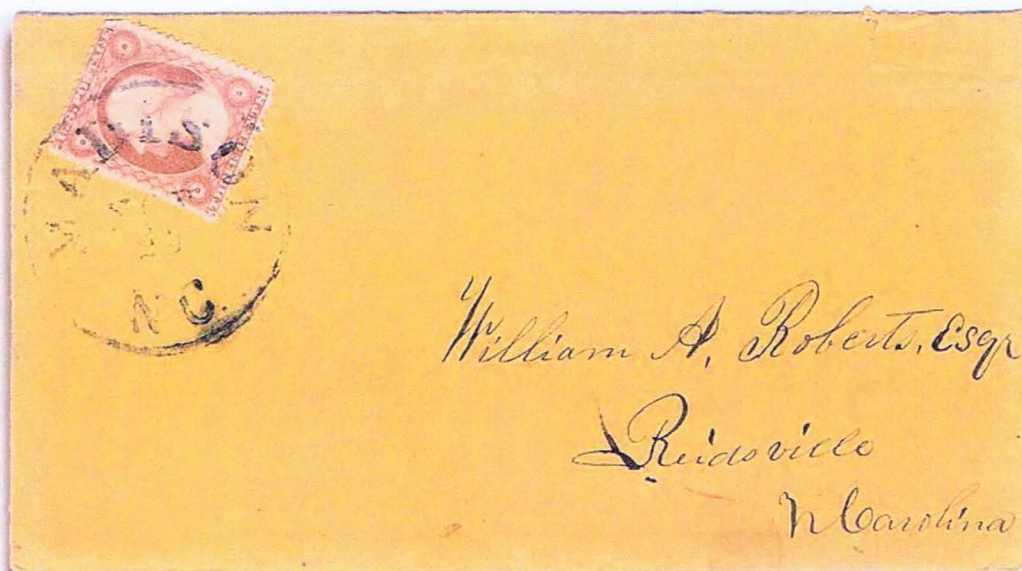 MADISON
N.C.
William A. Roberts, Esqr
Reidsville
N Carolina